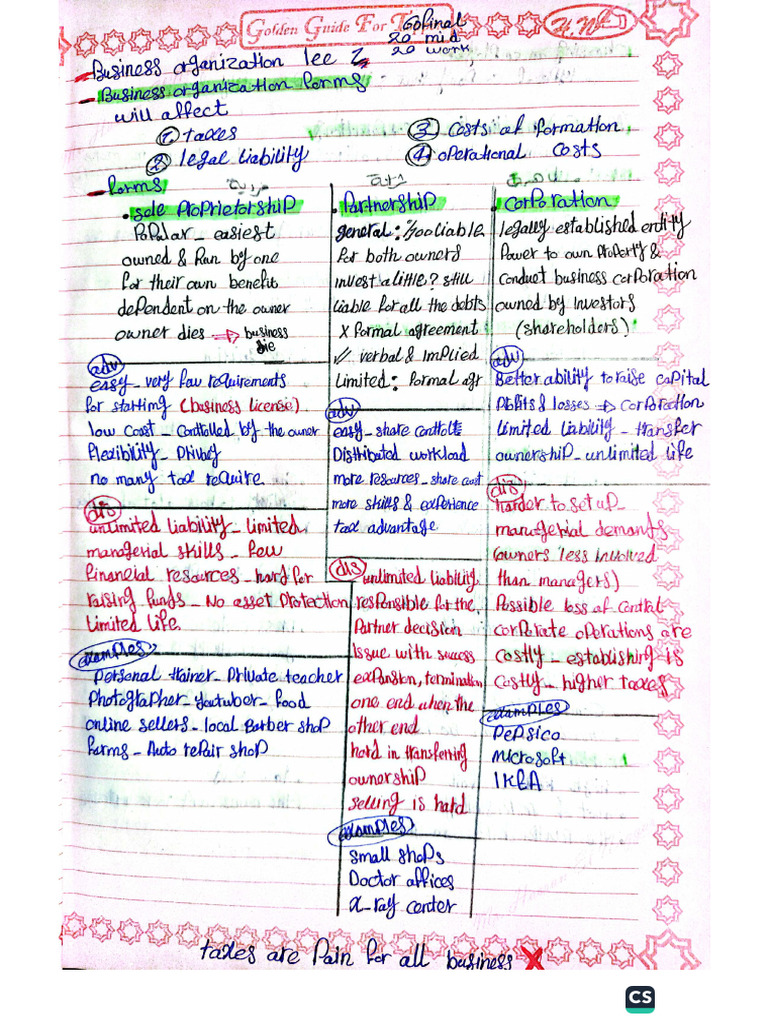 Golden Guide For T
60 final
20 mid
20 work
Business organization lec 2
- Business organization forms
will affect
① taxes
② legal liability
③ costs of formation
④ operational costs
- forms
فردية
• sole Proprietorship
Popular _ easiest
owned & Run by one
for their own benefit
dependent on the owner
owner dies → business
die
adv
easy _ very few requirements
for starting (business license)
low cost _ controlled by the owner
flexibility _ Privacy
no many tax require
dis
unlimited liability _ limited
managerial skills _ few
financial resources _ hard for
raising funds _ No asset Protection
limited life.
examples
Personal trainer _ Private teacher
Photographer _ youtuber _ food
online sellers _ local barber shop
farms _ Auto repair shop
• Partnership
general: %00 liable
for both owners
invest a little? still
liable for all the debts
x formal agreement
✓ verbal & Implied
Limited: formal agr
adv
easy _ share
Distributed workload
more resources _ share cost
more skills & experience
tax advantage
dis
unlimited liability
responsible for the
Partner decision
Issue with success
expansion, termination
one end when the
other end
hard in transferring
ownership
selling is hard
examples
small shops
Doctor offices
x-ray center
• Corporation
legally established entity
Power to own Property &
Conduct business corporation
owned by Investors
(shareholders)
adv
Better ability to raise capital
Profits & losses → corporation
limited liability _ transfer
ownership _ unlimited life
dis
harder to set up _
managerial demands
(owners less involved
than managers)
Possible loss of control
corporate operations are
costly _ establishing is
costly _ higher taxes
examples
Pepsico
microsoft
IKEA
taxes are Pain for all business X
CS